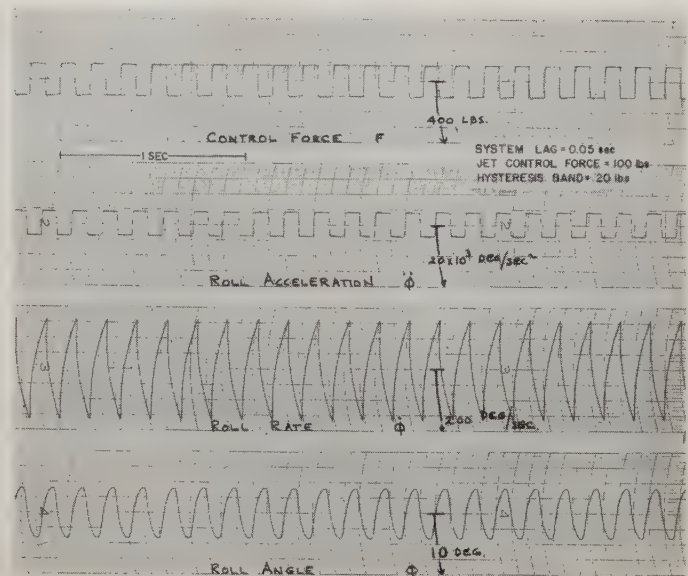 400 LBS.
CONTROL FORCE F
1 SEC
SYSTEM LAG = 0.05 sec
JET CONTROL FORCE = 100 lbs
HYSTERESIS BAND = 20 lbs
2 2
20x10³ DEG/SEC²
ROLL ACCELERATION φ̈
3 3
200 DEG/SEC.
ROLL RATE φ̇
4 4
10 DEG.
ROLL ANGLE φ